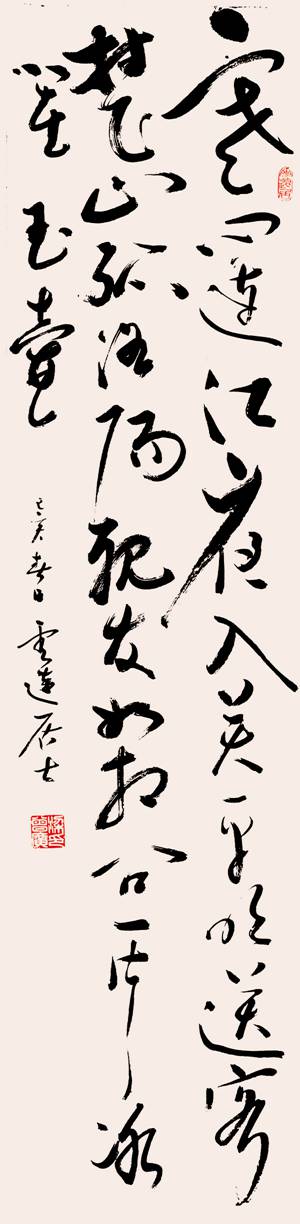 寒雨連江夜入吴平明送客
楚山孤洛陽親友如相问一片冰
心在玉壶
己亥春日雲蓮居士